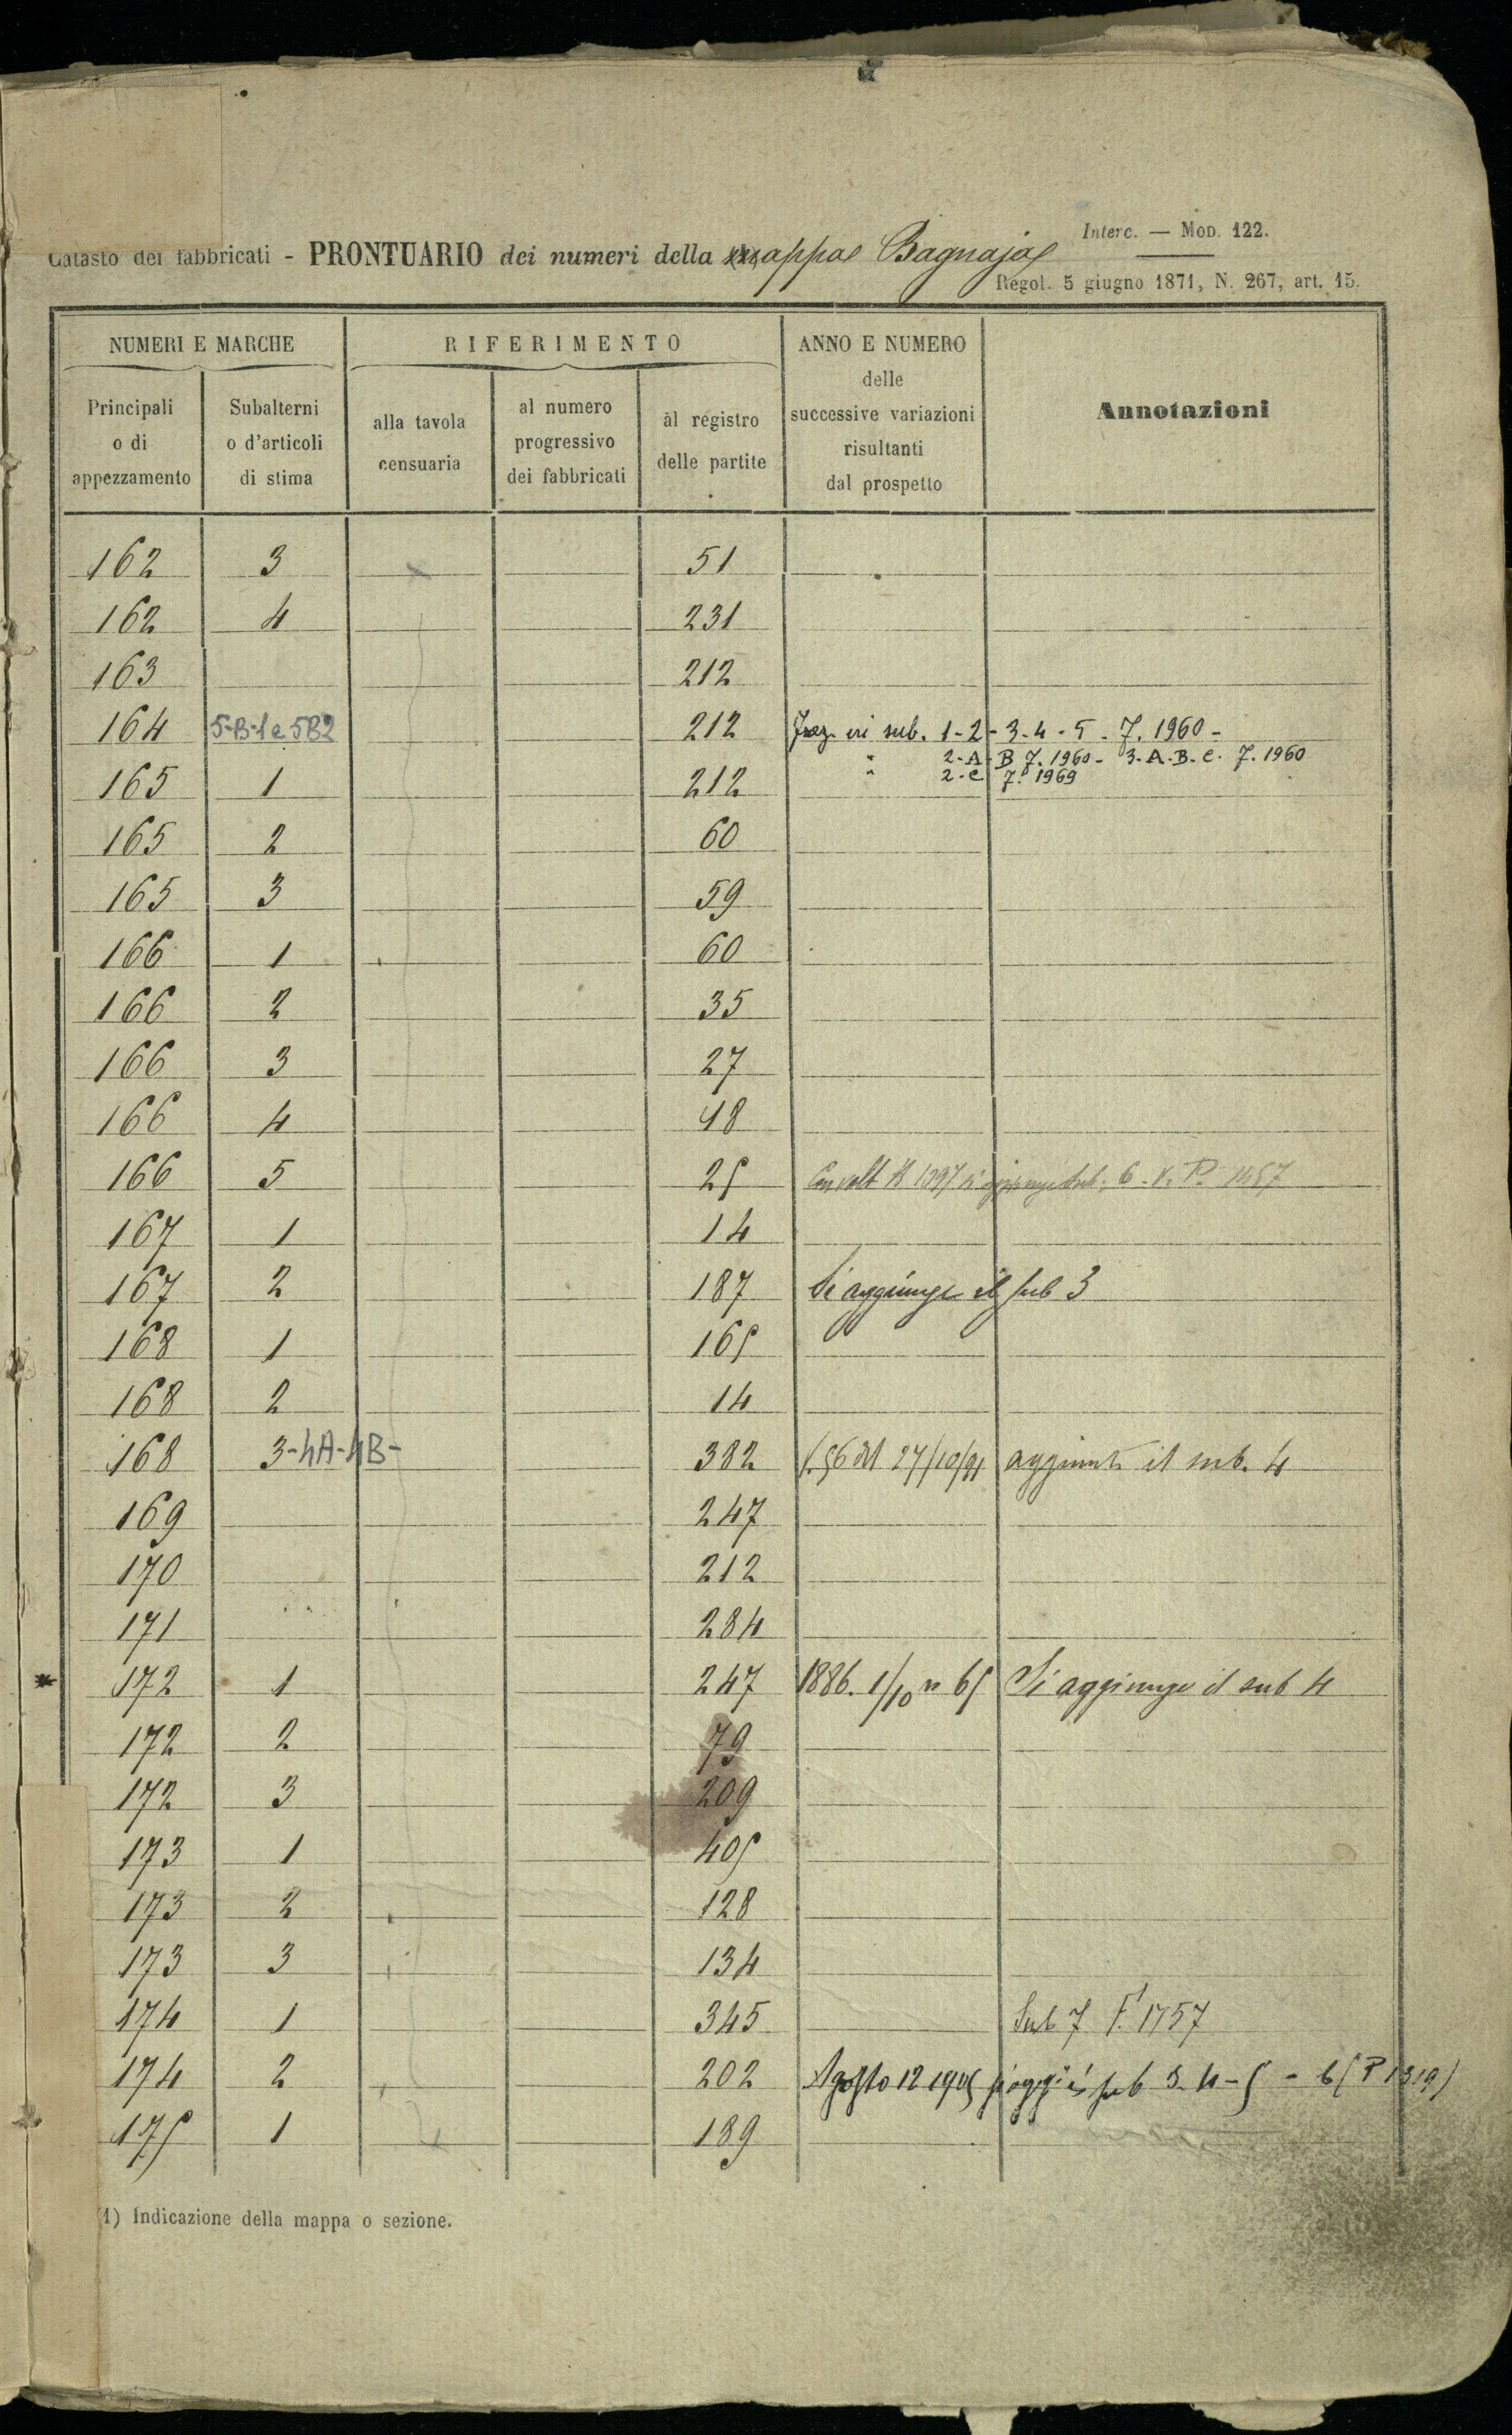 Interc. — Mod. 122.
Catasto dei fabbricati - PRONTUARIO dei numeri della mappa Bagnaja
Regol. 5 giugno 1871, N. 267, art. 15.
NUMERI E MARCHE
RIFERIMENTO
ANNO E NUMERO
delle
successive variazioni
risultanti
dal prospetto
Annotazioni
Principali
o di
appezzamento
Subalterni
o d'articoli
di stima
alla tavola
censuaria
al numero
progressivo
dei fabbricati
al registro
delle partite
162 3 51
162 4 231
163 212
164 5-B-1 e 5B2 212 Fraz. in sub. 1-2-3-4-5- 7. 1960-
" 2-A-B 7. 1960- 3-A-B-C. 7. 1960
165 1 212 " 2-C 7. 1969
165 2 60
165 3 59
166 1 60
166 2 35
166 3 27
166 4 48
166 5 25 sub. 6
167 1 14
167 2 187 Si aggiunge il sub 3
168 1 165
168 2 14
168 3-4A-4B- 382 27/10/91 aggiunto il sub. 4
169 247
170 212
171 284
* 172 1 247 1886. 1/10 n 65 Si aggiunge il sub 4
172 2 79
172 3 209
173 1 405
173 2 128
173 3 134
174 1 345 Sub 7 1757
174 2 202 Agosto 12 1905 si aggi i sub 3-4-5-6 (P 1319)
175 1 189
(1) Indicazione della mappa o sezione.